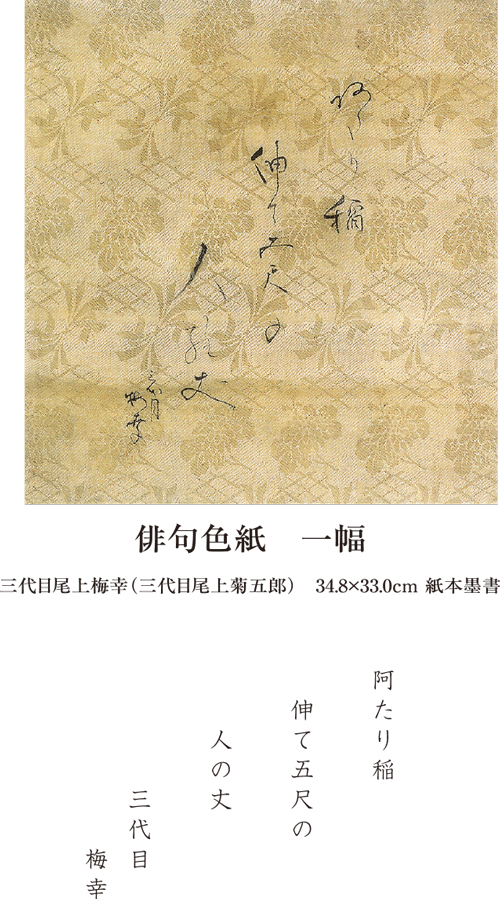 阿たり稲
伸て五尺の
人の丈
三代目
梅幸
俳句色紙　一幅
三代目尾上梅幸（三代目尾上菊五郎）　34.8×33.0cm 紙本墨書
阿たり稲
伸て五尺の
人の丈
三代目
梅幸